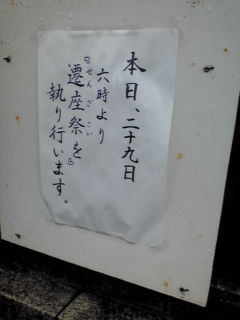 本日、二十九日
六時より
『遷座祭を』
せんざさい
執り行います。